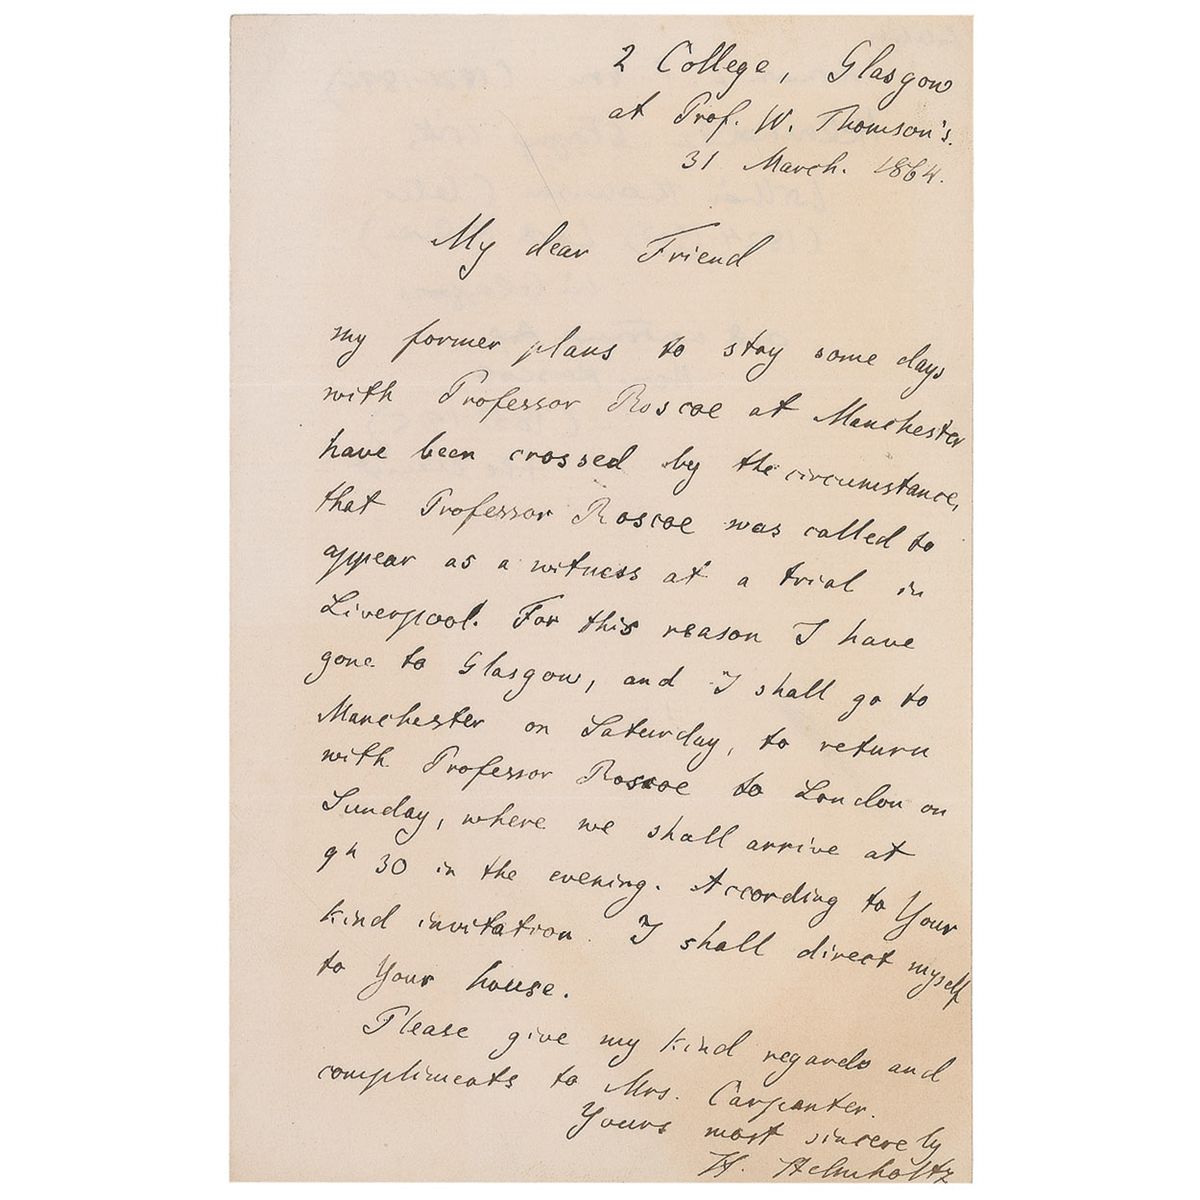 2 College, Glasgow
at Prof. W. Thomson's.
31 March. 1864.
My dear Friend
my former plans to stay some days
with Professor Roscoe at Manchester
have been crossed by the circumstance,
that Professor Roscoe was called to
appear as a witness at a trial in
Liverpool. For this reason I have
gone to Glasgow, and I shall go to
Manchester on Saturday, to return
with Professor Roscoe to London on
Sunday, where we shall arrive at
9h 30 in the evening. According to Your
kind invitation I shall direct myself
to Your house.
Please give my kind regards and
compliments to Mrs. Carpenter.
Yours most sincerely
H. Helmholtz